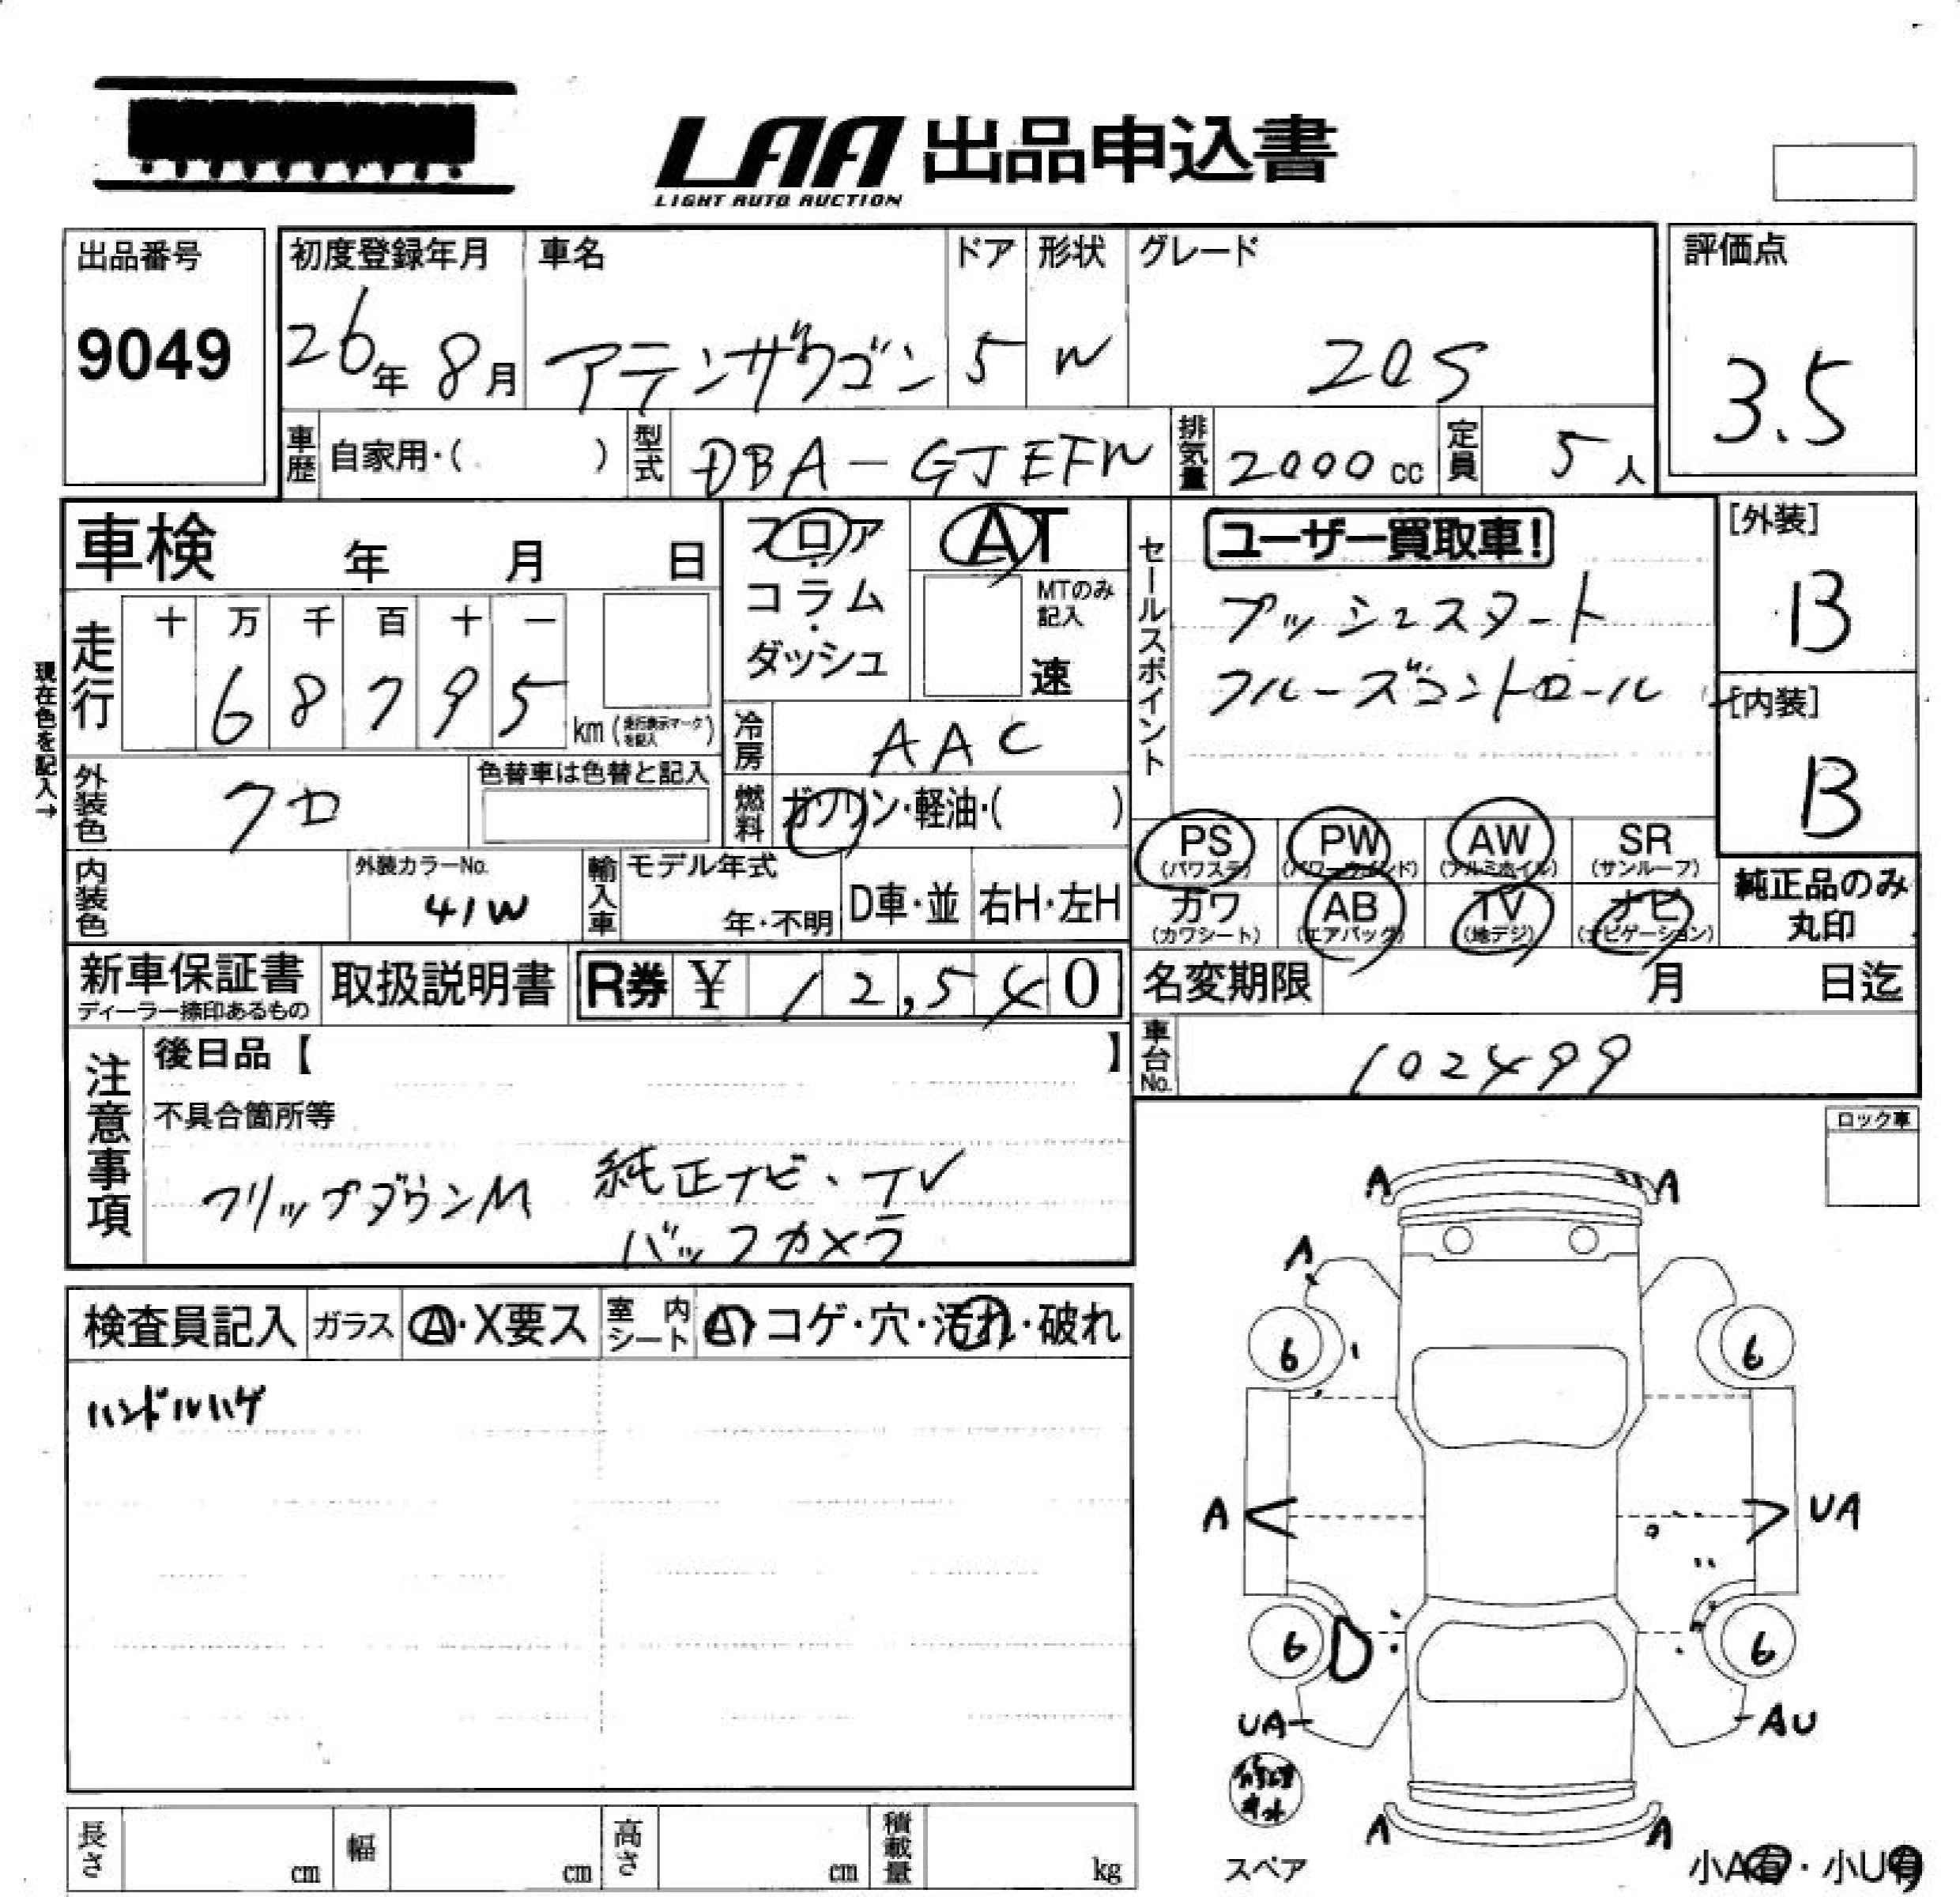 LAA 出品申込書
LIGHT AUTO AUCTION
出品番号
9049
初度登録年月
26年 8月
車名
アテンザワゴン
ドア
5
形状
W
グレード
20S
評価点
3.5
車歴 自家用・( )
型式 DBA-GJEFW
排気量 2000cc
定員 5人
車検 年 月 日
フロア・コラム・ダッシュ
AT
MTのみ記入
速
セールスポイント
ユーザー買取車!
プッシュスタート
クルーズコントロール
[外装]
B
[内装]
B
現在色を記入→
走行
十 万 千 百 十 一
6 8 7 9 5
km (走行表示マークを記入)
冷房 AAC
燃料 ガソリン・軽油・( )
外装色 クロ
色替車は色替と記入
内装色
外装カラーNo.
41W
輸入車
モデル年式
年・不明
D車・並
右H・左H
PS (パワステ)
PW (パワーウインド)
AW (アルミホイル)
SR (サンルーフ)
カワ (カワシート)
AB (エアバック)
TV (地デジ)
ナビ (ナビゲーション)
純正品のみ丸印
新車保証書
ディーラー捺印あるもの
取扱説明書
R券 ¥ 12,540
名変期限 月 日迄
車台No. 102499
注意事項
後日品【 】
不具合箇所等
フリップダウンM
純正ナビ・TV
バックカメラ
ロック車
検査員記入
ガラス A・X要ス
室内シート コゲ・穴・汚れ・破れ
ハンドルハゲ
A A
A
6 6
A UA
6 D 6
UA AU
修理キット
スペア
A A
小A有・小U有
長さ cm
幅 cm
高さ cm
積載量 kg